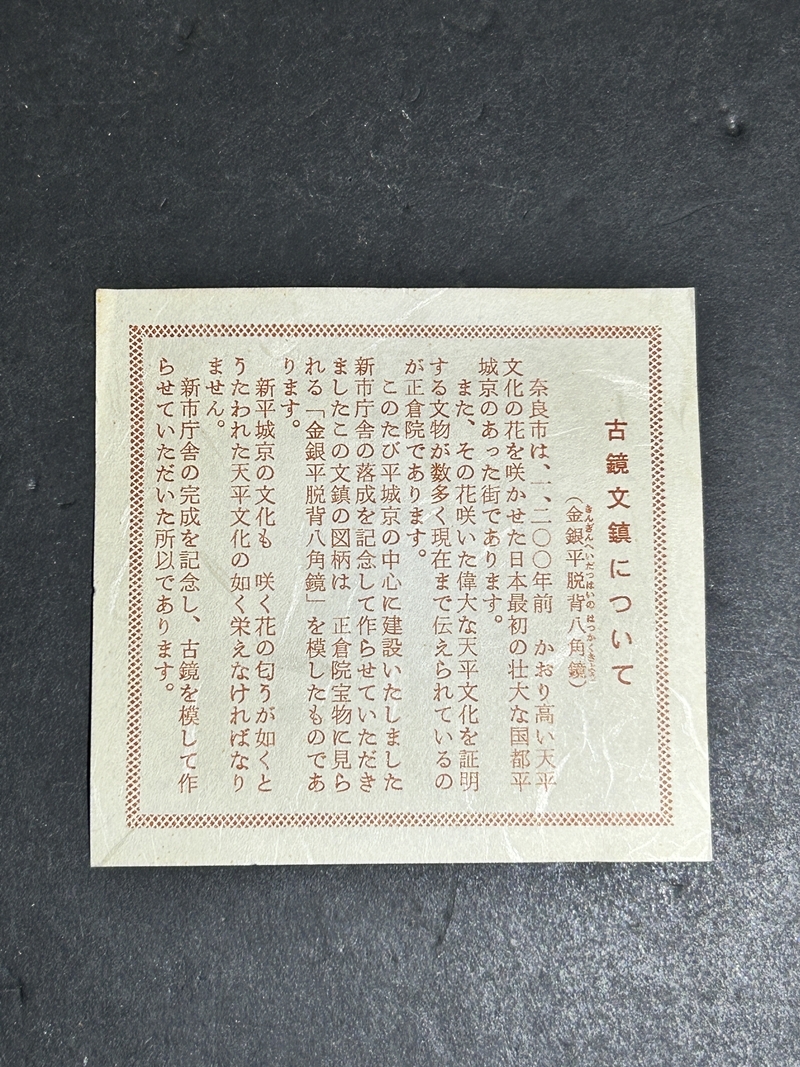 古鏡文鎮について
(金銀平脱背八角鏡)
奈良市は、一、二〇〇年前　かおり高い天平
文化の花を咲かせた日本最初の壮大な国都平
城京のあった街であります。
また、その花咲いた偉大な天平文化を証明
する文物が数多く現在まで伝えられているの
が正倉院であります。
このたび平城京の中心に建設いたしました
新市庁舎の落成を記念して作らせていただき
ましたこの文鎮の図柄は　正倉院宝物に見ら
れる「金銀平脱背八角鏡」を模したものであ
ります。
新平城京の文化も　咲く花の匂うが如くと
うたわれた天平文化の如く栄えなければなり
ません。
新市庁舎の完成を記念し、古鏡を模して作
らせていただいた所以であります。